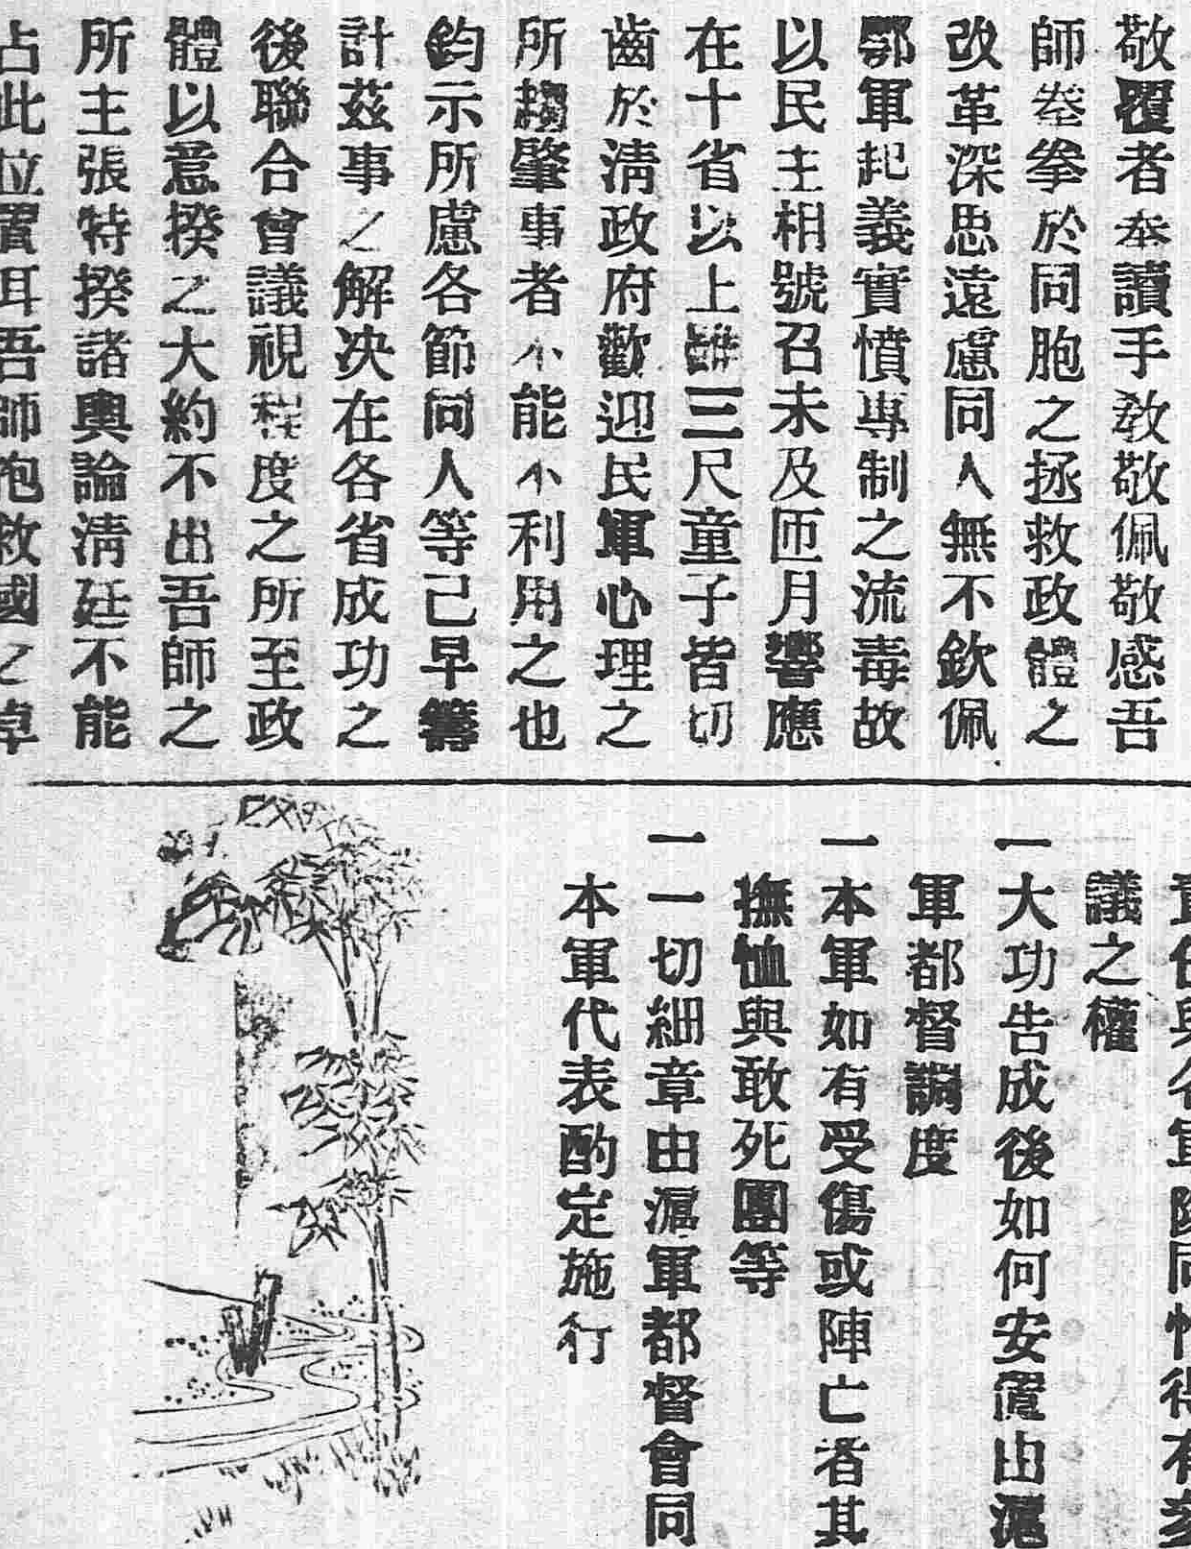 敬覆者奉讀手敎敬佩敬感吾
師拳拳於同胞之拯救政體之
改革深思遠慮同人無不欽佩
鄂軍起義實憤專制之流毒故
以民主相號召未及匝月響應
在十省以上雖三尺童子皆切
齒於淸政府歡迎民軍心理之
所趨肇事者不能不利用之也
鈞示所慮各節同人等已早籌
計茲事之解决在各省成功之
後聯合會議視程度之所至政
體以意揆之大約不出吾師之
所主張特揆諸輿論淸廷不能
占此位置耳吾師抱救國之
議之權
一大功告成後如何安置由滬
軍都督調度
一本軍如有受傷或陣亡者其
撫恤與敢死團等
一一切細章由滬軍都督會同
本軍代表酌定施行